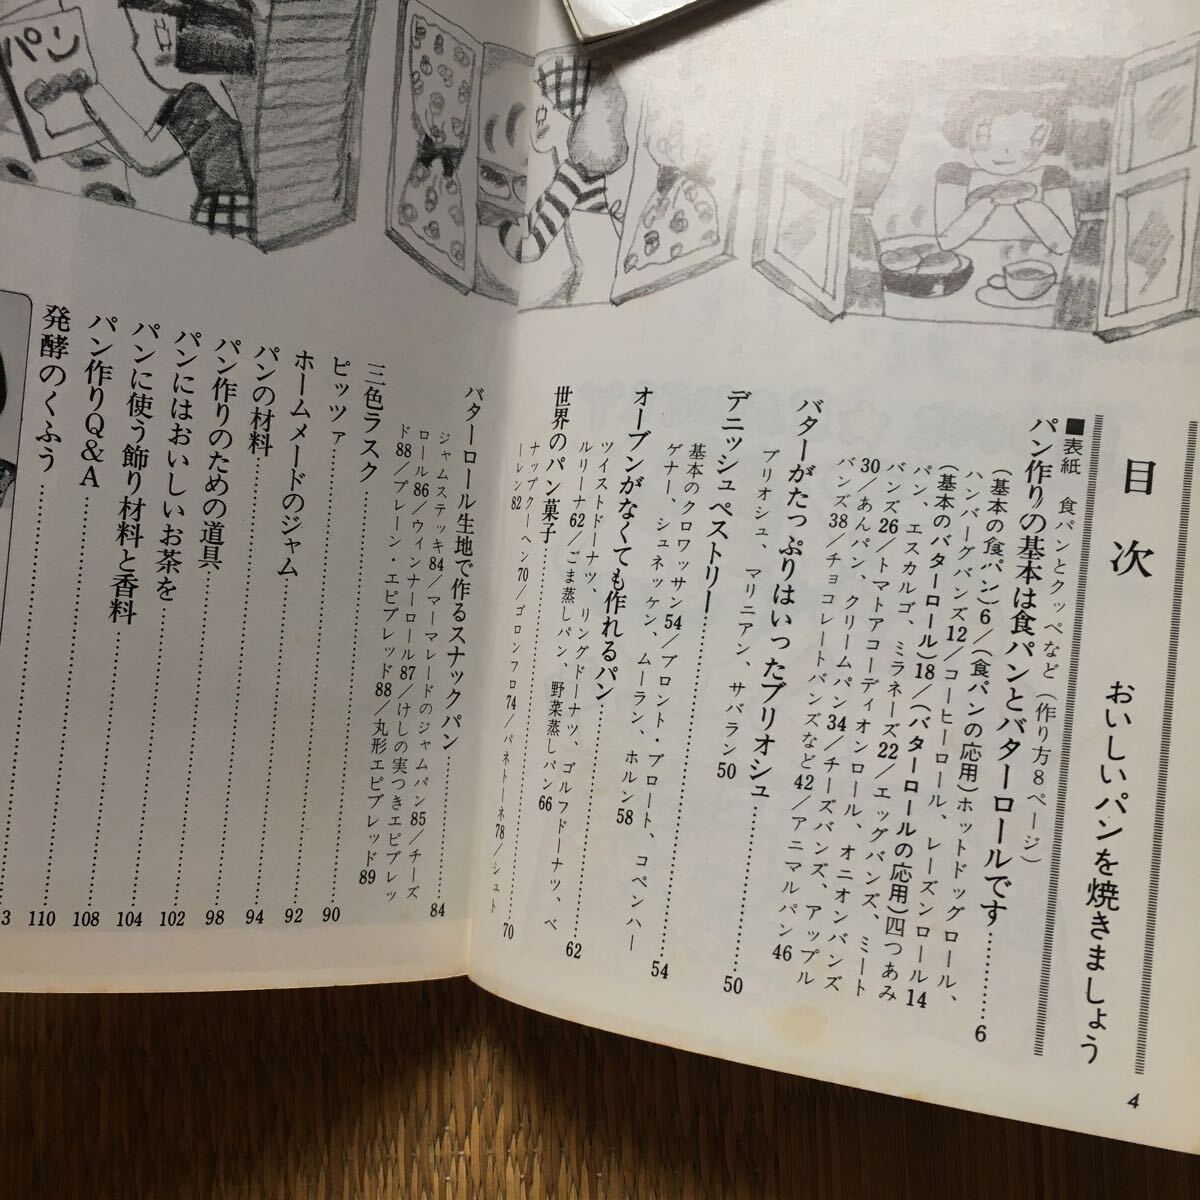 目次　おいしいパンを焼きましょう
■表紙　食パンとクッペなど（作り方8ページ）
パン作りの基本は食パンとバターロールです……6
（基本の食パン）6／（食パンの応用）ホットドッグロール、
ハンバーグバンズ12／コーヒーロール、レーズンロール14
（基本のバターロール）18／（バターロールの応用）四つあみ
パン、エスカルゴ、ミラネーズ22／エッグバンズ、ミート
バンズ26／トマトアコーディオンロール、オニオンバンズ
30／あんパン、クリームパン34／チーズバンズ、アップル
バンズ38／チョコレートバンズなど42／アニマルパン46
バターがたっぷりはいったブリオシュ……50
ブリオシュ、マリニアン、サバラン50
デニッシュペストリー……54
基本のクロワッサン54／ブロント・ブロート、コペンハー
ゲナー、シュネッケン、ムーラン、ホルン58
オーブンがなくても作れるパン……62
ツイストドーナツ、リングドーナツ、ゴルフドーナツ、ベ
ルリーナ62／ごま蒸しパン、野菜蒸しパン66
世界のパン菓子……70
ナップクーヘン70／ゴロンフロ74／パネトーネ78／シュト
ーレン82
バターロール生地で作るスナックパン……84
ジャムステッキ84／マーマレードのジャムパン85／チーズ
ロール86／ウインナーロール87／けしの実つきエピブレッ
ド88／プレーン・エピブレッド88／丸形エピブレッド89
三色ラスク……90
ピッツァ……92
ホームメードのジャム……94
パンの材料……98
パン作りのための道具……102
パンにはおいしいお茶を……104
パンに使う飾り材料と香料……108
パン作りQ&A……110
発酵のくふう……3
4
パン